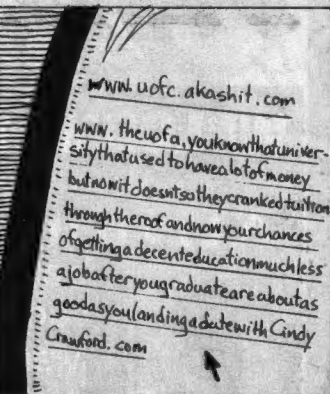 www.uofc.akashit.com
www.theuofa,youknowthatuniver-
sitythatusedtohavealotofmoney
butnowitdoesntsotheycrankedtuition
throughtheroofandnowyourchances
ofgettingadecenteducationmuchless
ajobafteryougraduateareaboutas
goodasyoulandingadatewith Cindy
Crawford.com